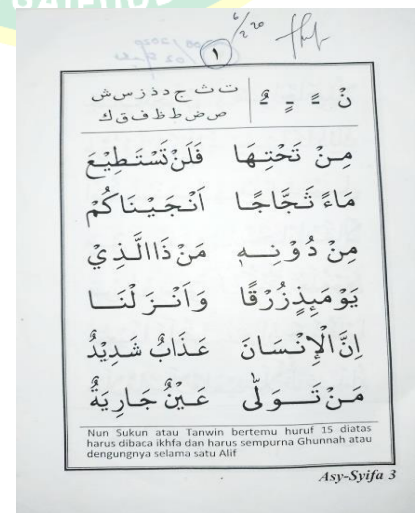 ١
نْ ـً ـٍ ـٌ ت ث ج د ذ ز س ش
ص ض ط ظ ف ق ك
مِنْ تَحْتِهَا فَلَنْ تَسْتَطِيْعَ
مَاءً ثَجَّاجًا اَنْجَيْنَاكُمْ
مِنْ دُوْنِهٖ مَنْ ذَاالَّذِيْ
يَوْمَئِذٍ زُرْقًا وَاَنْزَلْنَا
اِنَّ الْاِنْسَانَ عَذَابٌ شَدِيْدٌ
مَنْ تَوَلّٰى عَيْنٌ جَارِيَةٌ
Nun Sukun atau Tanwin bertemu huruf 15 diatas
harus dibaca ikhfa dan harus sempurna Ghunnah atau
dengungnya selama satu Alif
Asy-Syifa 3